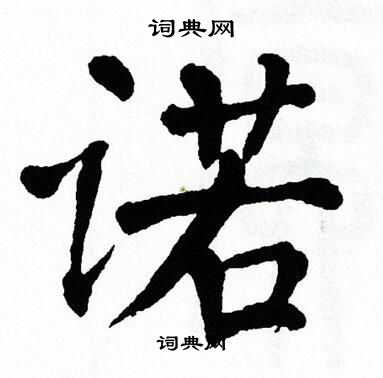 词典网
诺
词典网